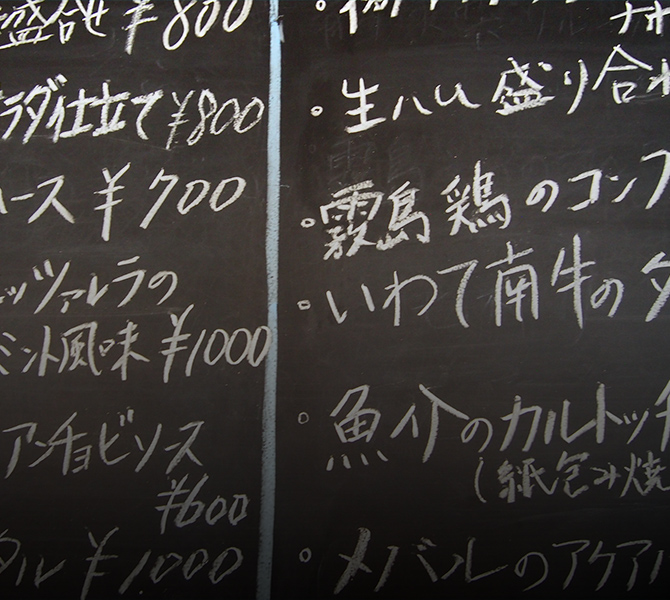 盛合せ ¥800
ラダ仕立て ¥800
ース ¥700
ッツァレラの
ミント風味 ¥1000
アンチョビソース
¥600
タル ¥1000
。生ハム 盛り合わ
。霧島鶏のコンフ
。いわて南牛のタ
。魚介のカルトッチ
(紙包み焼
。メバルのアクアパ